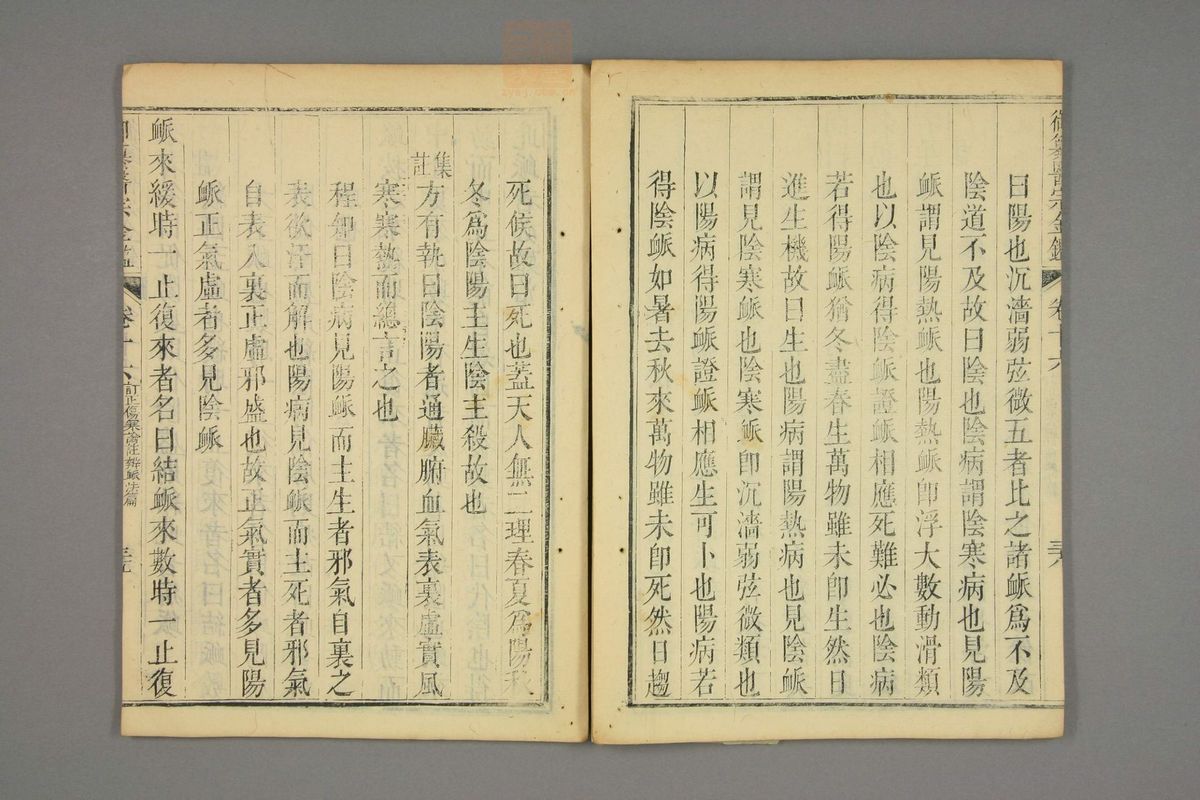 御纂醫宗金鑑 卷十六
曰陽也沉濇弱弦微五者比之諸脈爲不及
陰道不及故曰陰也陰病謂陰寒病也見陽
脈謂見陽熱脈也陽熱脈卽浮大數動滑類
也以陰病得陰脈證脈相應死難必也陰病
若得陽脈猶冬盡春生萬物雖未卽生然日
進生機故曰生也陽病謂陽熱病也見陰脈
謂見陰寒脈也陰寒脈卽沉濇弱弦微類也
以陽病得陽脈證脈相應生可卜也陽病若
得陰脈如暑去秋來萬物雖未卽死然日趨
死候故曰死也蓋天人無二理春夏爲陽秋
冬爲陰陽主生陰主殺故也
集註
方有執曰陰陽者通臟腑血氣表裏虛實風
寒寒熱而總言之也
程知曰陰病見陽脈而主生者邪氣自裏之
表欲汗而解也陽病見陰脈而主死者邪氣
自表入裏正虛邪盛也故正氣實者多見陽
脈正氣虛者多見陰脈
脈來緩時一止復來者名曰結脈來數時一止復
御纂醫宗金鑑 卷十六 訂正傷寒論註辨脈法篇